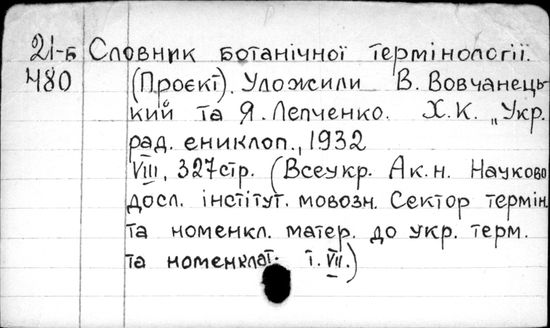 21-Б Словник ботанічної термінології.
480 (Проєкт). Уложили В. Вовчанець-
кий та Я. Лепченко. Х.К. „Укр.
рад. ениклоп., 1932
VIII, 327стр. (Всеукр. Ак.н. Науково
досл. інстітут. мовозн. Сектор термін.
та номенкл. матер. до укр. терм.
та номенклат. т. VII.)